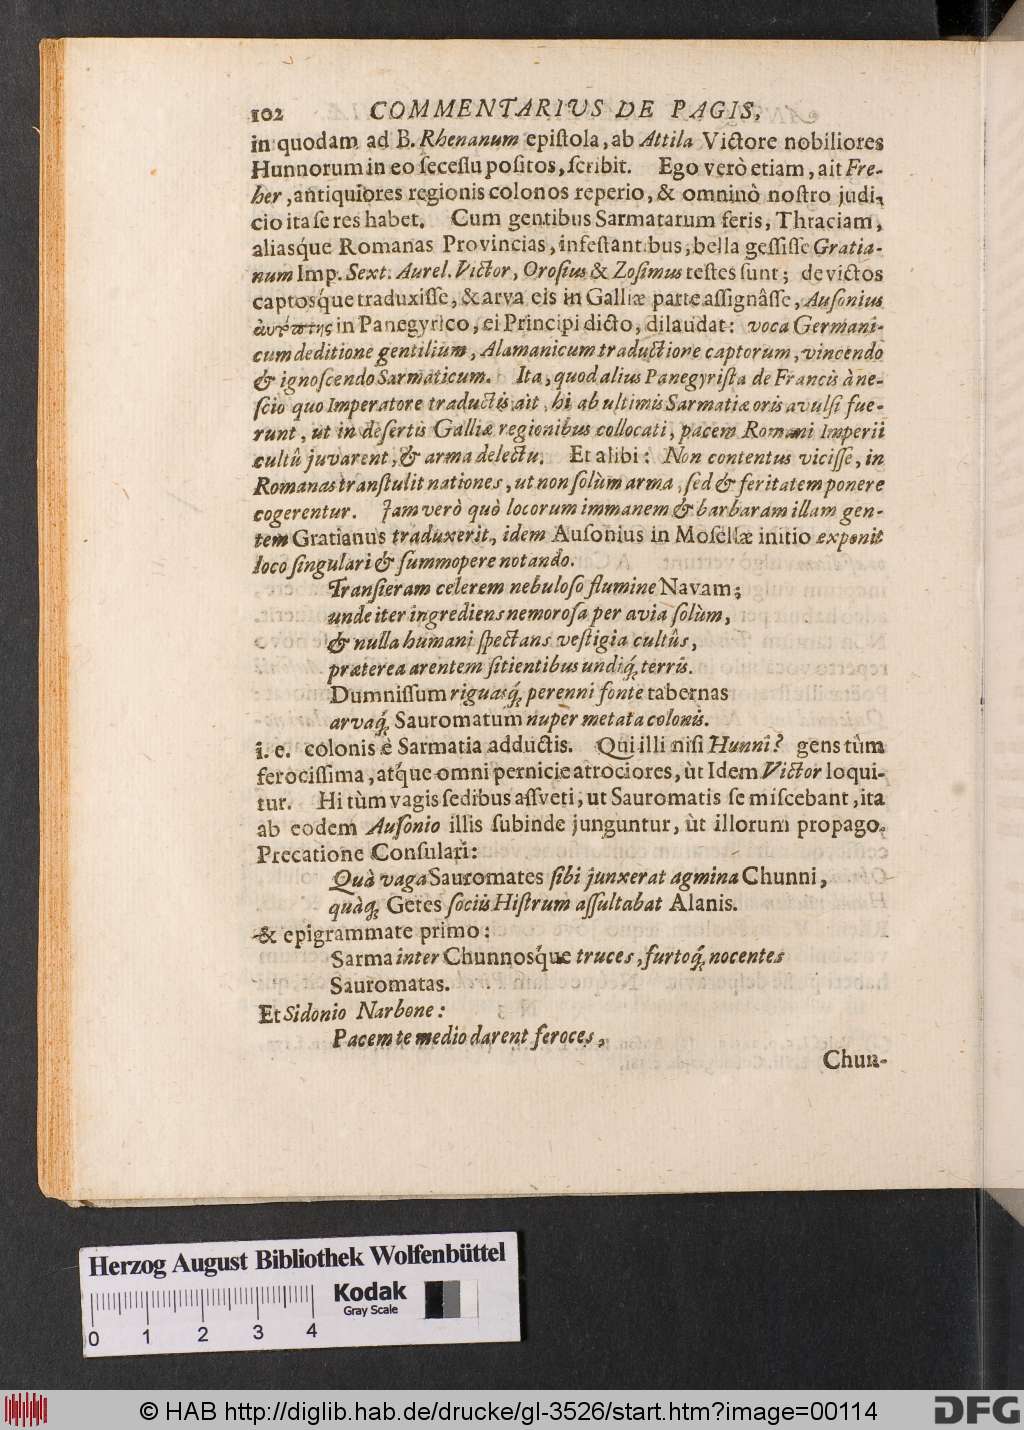 102 COMMENTARIVS DE PAGIS,
in quodam ad B. Rhenanum epiſtola, ab Attila Victore nobiliores
Hunnorum in eo ſeceſſu poſitos, ſcribit. Ego verò etiam, ait Fre-
her, antiquiores regionis colonos reperio, & omninò noſtro judi-
cio ita ſe res habet. Cum gentibus Sarmatarum feris, Thraciam,
aliasq́ue Romanas Provincias, infeſtantibus, bella geſſiſſe Gratia-
num Imp. Sext. Aurel. Victor, Oroſius & Zoſimus teſtes ſunt; devictos
captosq́ue traduxiſſe, & arva eis in Galliæ parte aſſignâſſe, Auſonius
in Panegyrico, ei Principi dicto, dilaudat: voca Germani-
cum deditione gentilium, Alamanicum traductione captorum, vincendo
& ignoſcendo Sarmaticum. Ita, quod alius Panegyriſta de Francis à ne-
ſcio quo Imperatore traductis ait, hi ab ultimis Sarmatiæ oris avulſi fue-
runt, ut in deſertis Galliæ regionibus collocati, pacem Romani Imperii
cultû juvarent, & arma delectu. Et alibi: Non contentus viciſſe, in
Romanas tranſtulit nationes, ut non ſolùm arma, ſed & feritatem ponere
cogerentur. Jam verò quò locorum immanem & barbaram illam gen-
tem Gratianus traduxerit, idem Auſonius in Moſellæ initio exponit
loco ſingulari & ſummopere notando.
Tranſieram celerem nebuloſo flumine Navam;
unde iter ingrediens nemoroſa per avia ſolùm,
& nulla humani ſpectans veſtigia cultûs,
præterea arentem ſitientibus undiq́; terris.
Dumniſſum riguasq́; perenni fonte tabernas
arvaq́; Sauromatum nuper metata colonis.
i. e. colonis è Sarmatia adductis. Qui illi niſi Hunni? gens tùm
ferociſſima, atq́ue omni pernicie atrociores, ùt Idem Victor loqui-
tur. Hi tùm vagis ſedibus aſſveti, ut Sauromatis ſe miſcebant, ita
ab eodem Auſonio illis ſubinde junguntur, ùt illorum propago.
Precatione Conſulari:
Quà vaga Sauromates ſibi junxerat agmina Chunni,
quàq́; Getes ſociis Hiſtrum aſſultabat Alanis.
& epigrammate primo:
Sarma inter Chunnosq́ue truces, furtoq́; nocentes
Sauromatas.
Et Sidonio Narbone:
Pacem te medio darent feroces,
Chun-
Herzog August Bibliothek Wolfenbüttel
Kodak
Gray Scale
0 1 2 3 4
© HAB http://diglib.hab.de/drucke/gl-3526/start.htm?image=00114
DFG